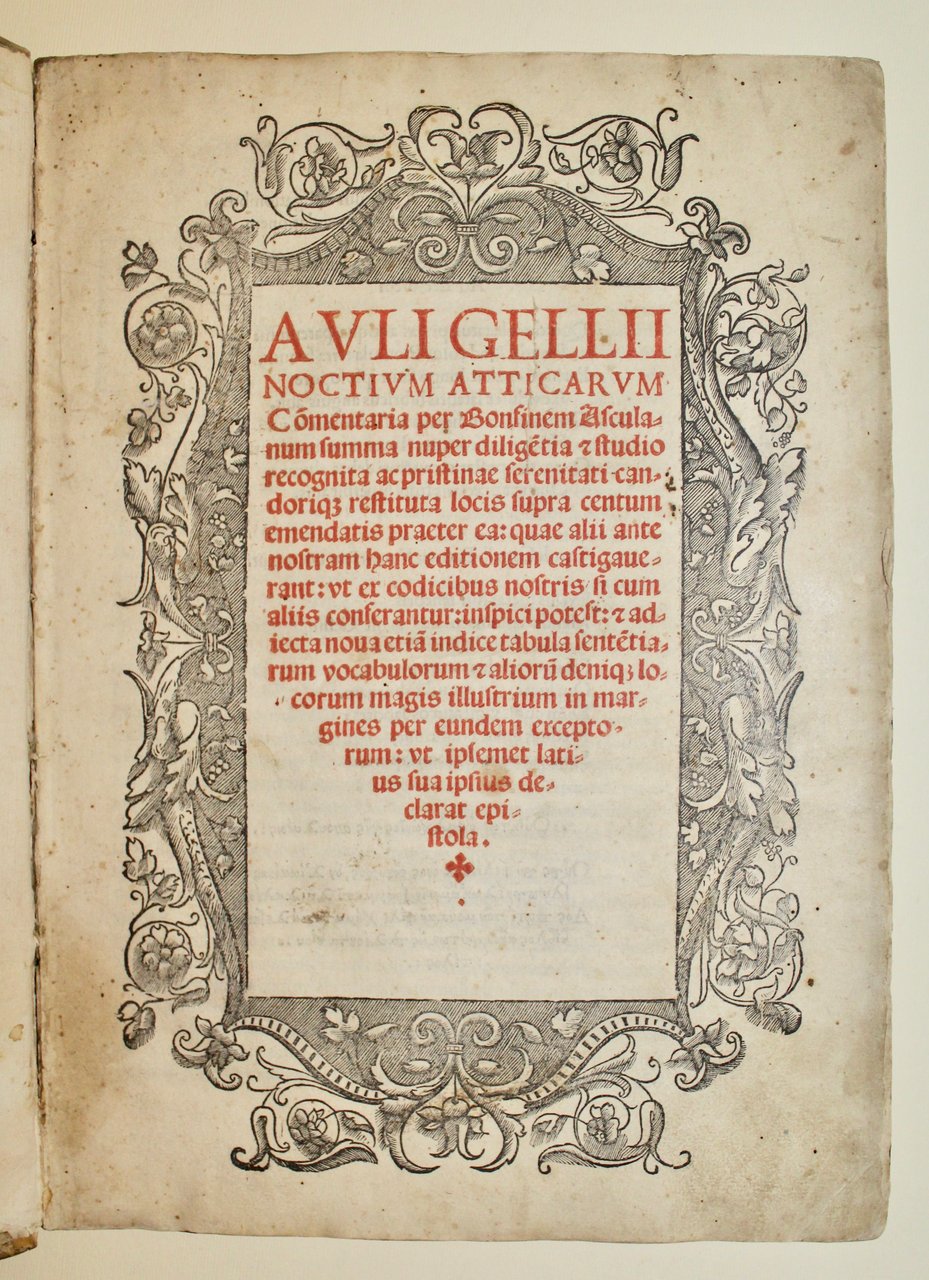 AVLI GELLII
NOCTIVM ATTICARVM
Cõmentaria per Bonfinem Ascula-
num summa nuper diligẽtia ⁊ studio
recognita ac pristinae serenitati can-
doriqꝫ restituta locis supra centum
emendatis praeter ea: quae alii ante
nostram hanc editionem castigaue-
rant: vt ex codicibus nostris si cum
aliis conferantur: inspici potest: ⁊ ad-
iecta noua etiã indice tabula sentẽtia-
rum vocabulorum ⁊ aliorũ deniqꝫ lo-
corum magis illustrium in mar-
gines per eundem excepto-
rum: vt ipsemet lati-
us sua ipsius de-
clarat epi-
stola.